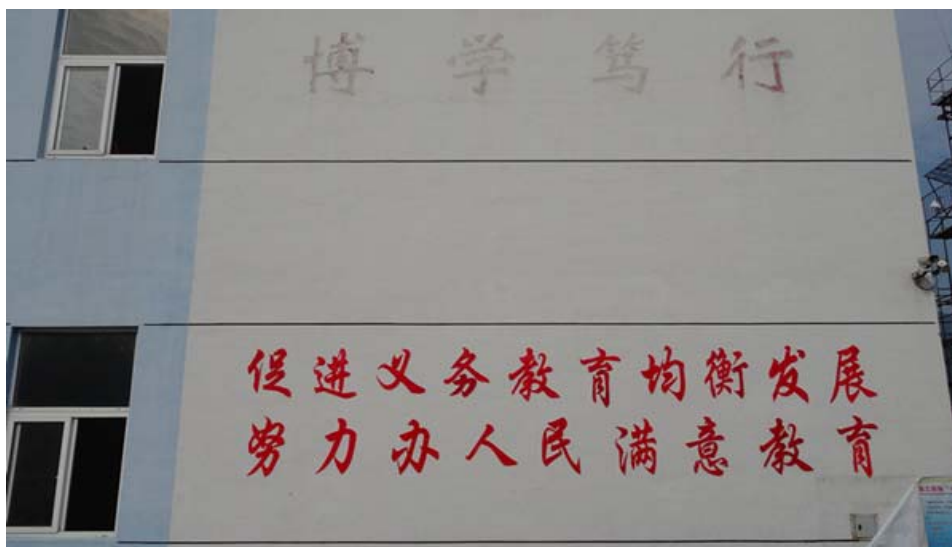 博学笃行
促进义务教育均衡发展
努力办人民满意教育